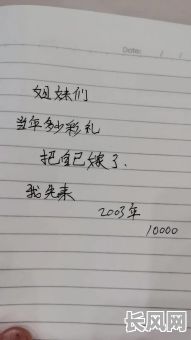 Date:
姐妹们
当年多少彩礼
把自己嫁了.
我先来
2003年
10000
长风网